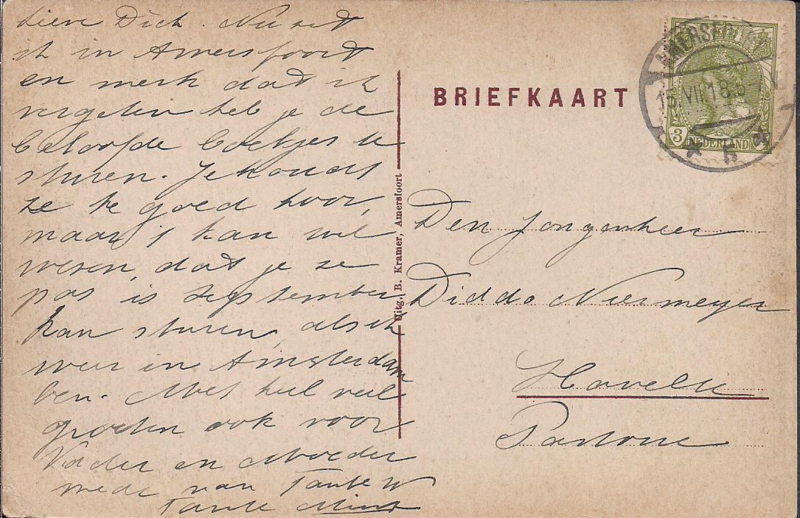 Lieve Dick. Nu zit
ik in Amersfoort
en merk dat ik
vergeten heb je de
beloofde boekjes te
sturen. Je houdt
ze te goed hoor,
maar 't kan wel
wezen, dat je ze
pas in September
kan sturen, als ik
weer in Amsterdam
ben. Met heel veel
groeten ook voor
Vader en Moeder
mede van Tante W
Tante
Uitg. B. Kramer, Amersfoort
BRIEFKAART
AMERSFOORT
15 VII 18
3 NEDERLAND
Den Jongenheer
Niermeyer
Havelte
Pastorie